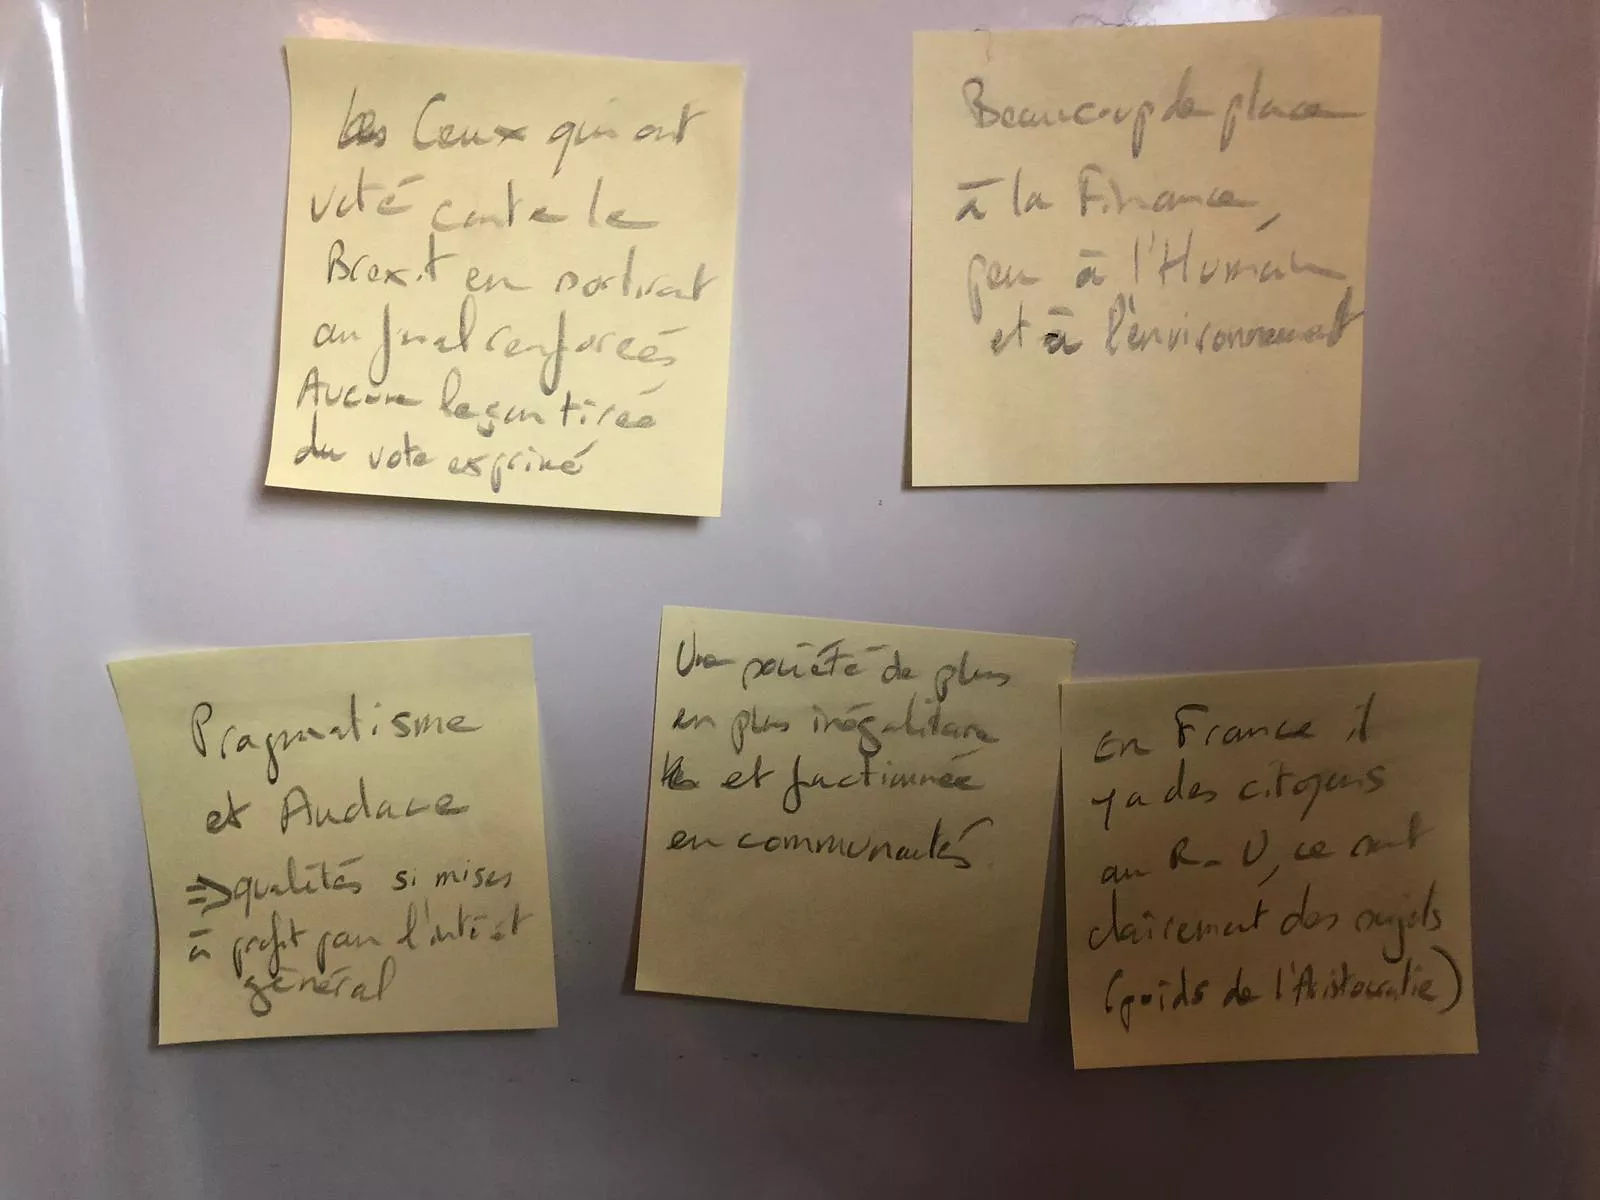 Ceux qui ont
voté contre le
Brexit en sortiront
au final renforcés
Aucune leçon tirée
du vote exprimé
Beaucoup de place
à la Finance,
peu à l'Humain
et à l'environnement
Pragmatisme
et Audace
=> qualités si mises
à profit par l'intérêt
général
Une société de plus
en plus inégalitaire
et factionnée
en communautés
En France il
y a des citoyens
au R-U, ce sont
clairement des sujets
(poids de l'Aristocratie)